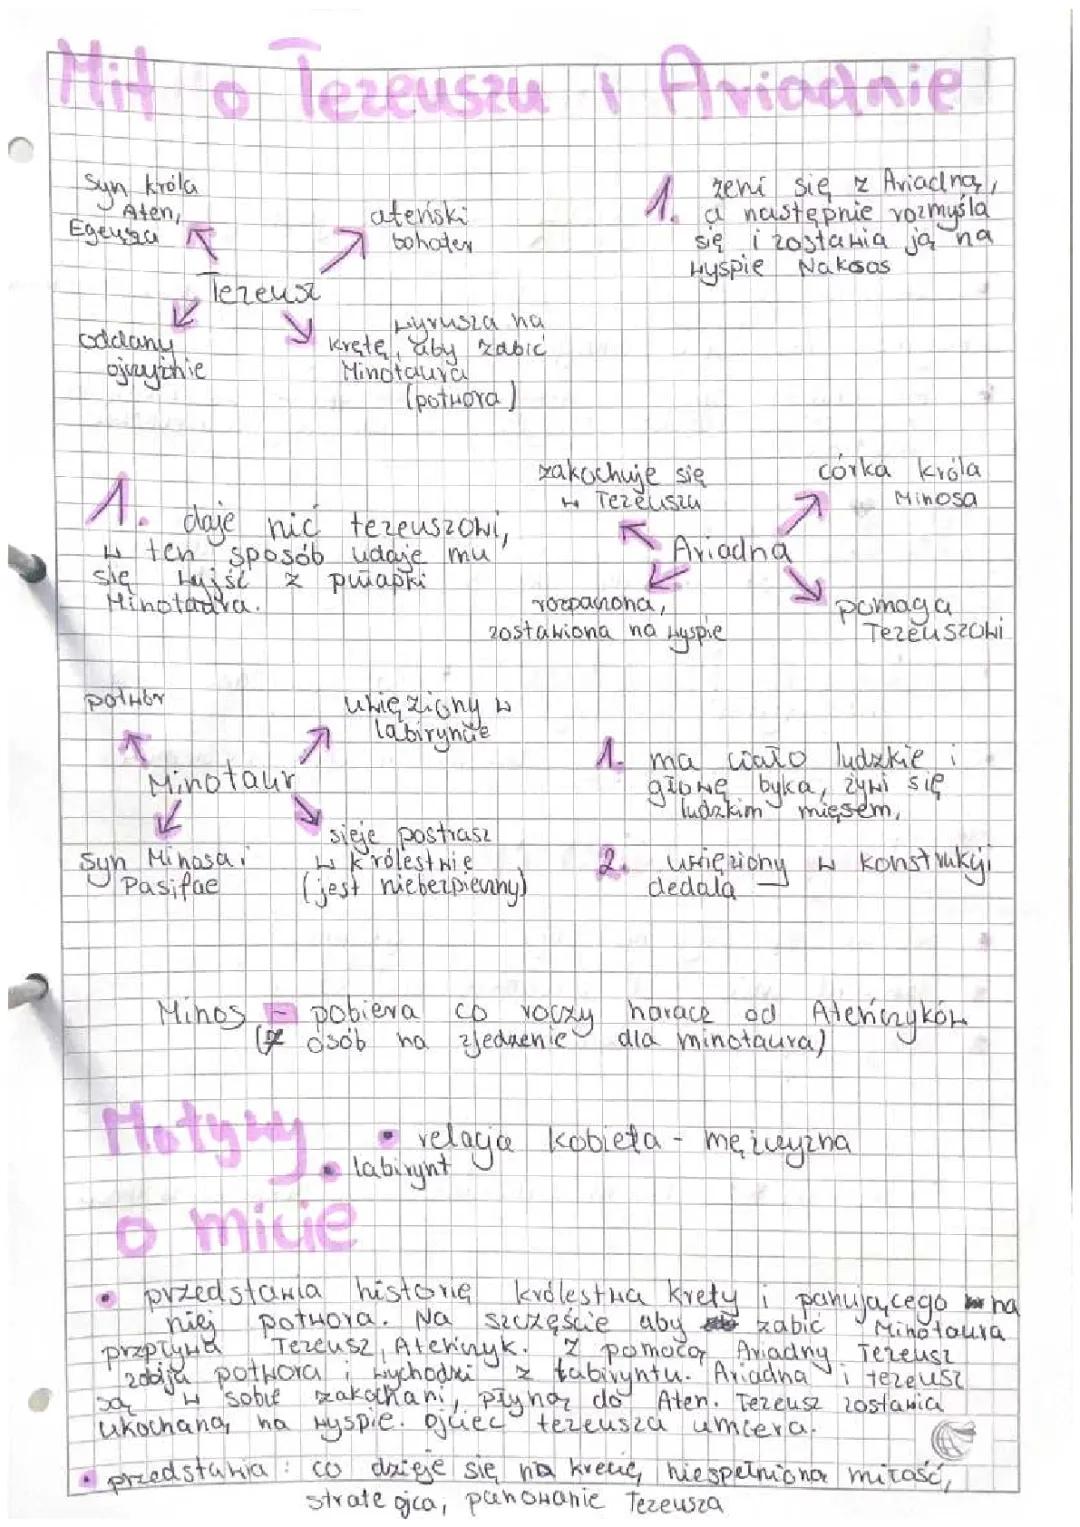 Mit o Tezeuszu i Ariadnie
syn króla
Aten,
Egeusza
ateński
bohater
Tezeusz
oddany
ojczyźnie
wyrusza na
kretę, aby zabić
Minotaura
(potwora)
1. żeni się z Ariadną,
a następnie rozmyśla
się i zostawia ją na
wyspie Naksos
1. daje nić tezeuszowi,
w ten sposób udaje mu
się wyjść z pułapki
Minotaura.
zakochuje się
w Tezeuszu
córka króla
Minosa
Ariadna
rozpaczona,
zostawiona na wyspie
pomaga
Tezeuszowi
potwór
uwięziony w
labiryncie
Minotaur
syn Minosa i
Pasifae
sieje postrasz
w królestwie
(jest niebezpieczny)
1. ma ciało ludzkie i
głowę byka, żywi się
ludzkim mięsem,
2. uwięziony w konstrukcji
dedala
Minos - pobiera co roczy haracz od Ateńczyków
(7 osób na zjedzenie dla minotaura)
Motywy.
• relacja kobieta - mężczyzna
• labirynt
o micie
• przedstawia historię królestwa Krety i panującego na
niej potwora. Na szczęście aby zabić Minotaura
przpływa Tezeusz, Ateńczyk. Z pomocą Ariadny Tezeusz
zabija potwora i wychodzi z labiryntu. Ariadna i tezeusz
są w sobie zakochani, płyną do Aten. Tezeusz zostawia
ukochaną na wyspie. Ojciec tezeusza umiera.
• przedstawia: co dzieje się na krecie, niespełniona miłość,
strate ojca, panowanie Tezeusza